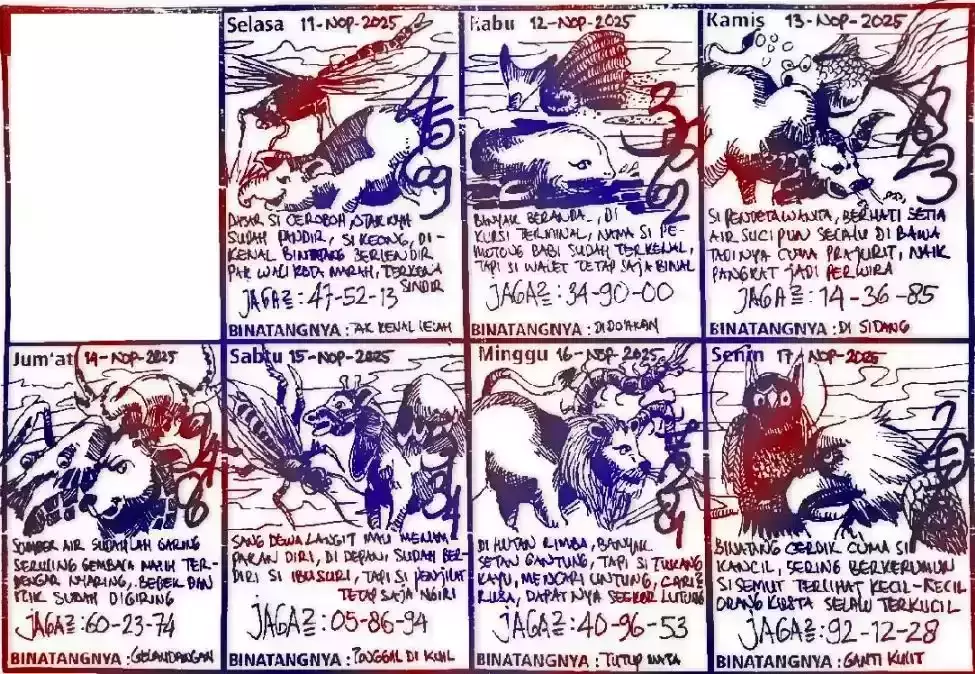 Selasa 11-NOP-2025
DASAR SI CEROBOH, OTAKNYA
SUDAH PANDIR, SI KEONG, DI-
KENAL BINATANG BERLENDIR
PAK WALI KOTA MARAH, TERKENA
SINDIR
JAGA2: 47-52-13
BINATANGNYA : TAK KENAL LELAH
Rabu 12-NOP-2025
BANYAK BERANDA, DI
KURSI TERMINAL, NAMA SI PE-
MOTONG BABI SUDAH TERKENAL,
TAPI SI WALET TETAP SAJA BINAL
JAGA2: 34-90-00
BINATANGNYA : DIDO'AKAN
Kamis 13-NOP-2025
SI PENDETA WANITA, BERHATI SETIA
AIR SUCI PUN SELALU DI BAWA
TADINYA CUMA PRAJURIT, NAIK
PANGKAT JADI PERWIRA
JAGA2: 14-36-85
BINATANGNYA : DI SIDANG
Jum'at 14-NOP-2025
SUMBER AIR SUDAHLAH GARING
SERULING GEMBALA MASIH TER-
DENGAR NYARING, BEBEK DAN
ITIK SUDAH DIGIRING
JAGA2: 60-23-74
BINATANGNYA : GELANDANGAN
Sabtu 15-NOP-2025
SANG DEWA LANGIT MAU MENAM
PAKAN DIRI, DI DEPAN, SUDAH BER-
DIRI SI IBU SURI, TAPI SI PENJILAT
TETAP SAJA NGIRI
JAGA2: 05-86-94
BINATANGNYA : TINGGAL DI KUIL
Minggu 16-NOP-2025
DI HUTAN RIMBA, BANYAK
SETAN GANTUNG, TAPI SI TUKANG
KAYU, MENCARI UNTUNG, CARI2
RUSA, DAPATNYA SEEKOR LUTUNG
JAGA2: 40-96-53
BINATANGNYA : TUTUP MATA
Senin 17-NOP-2025
BINATANG CERDIK CUMA SI
KANCIL, SERING BERKERUMUN
SI SEMUT TERLIHAT KECIL-KECIL
ORANG KUSTA SELALU TERKUCIL
JAGA2: 92-12-28
BINATANGNYA : GANTI KULIT